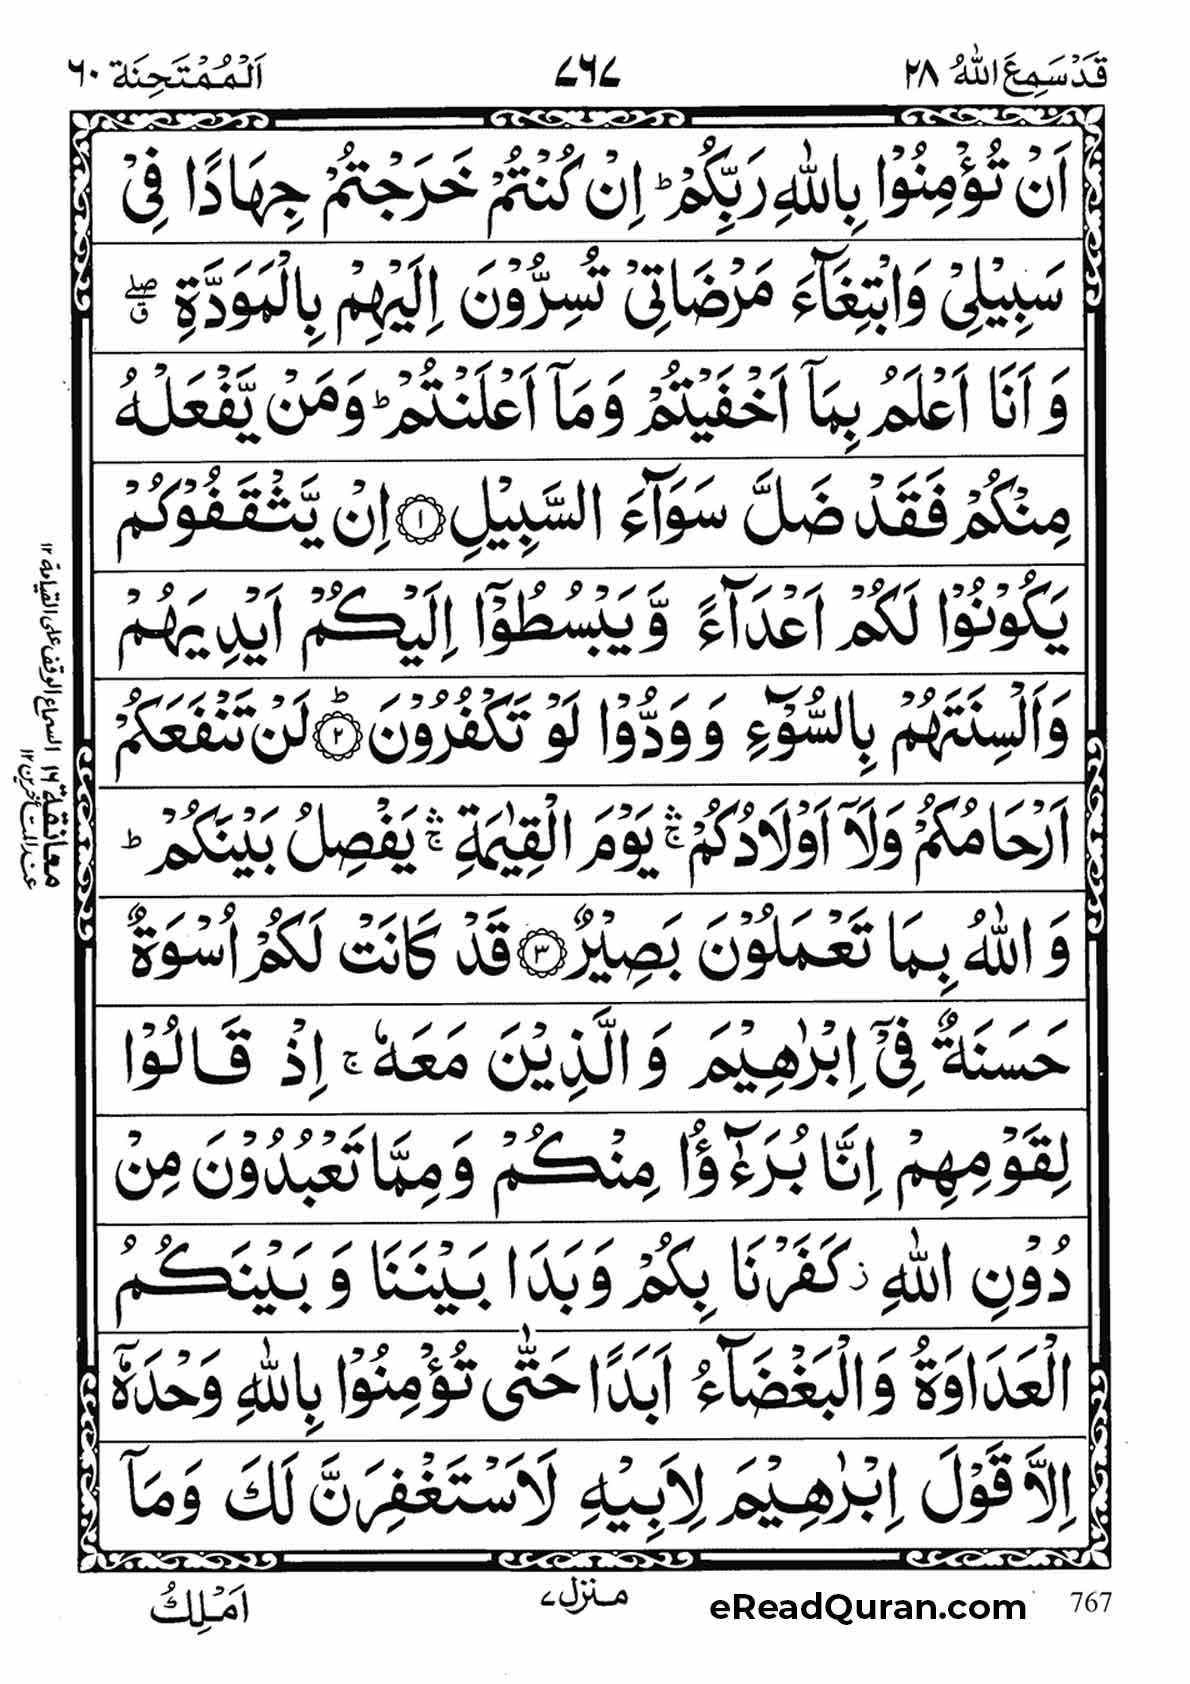 قَدْ سَمِعَ اللّٰهُ ٢٨
٧٦٧
اَلْمُمْتَحِنَة ٦٠
اَنْ تُؤْمِنُوْا بِاللّٰهِ رَبِّكُمْ ؕ اِنْ كُنْتُمْ خَرَجْتُمْ جِهَادًا فِیْ
سَبِیْلِیْ وَابْتِغَآءَ مَرْضَاتِیْ تُسِرُّوْنَ اِلَیْهِمْ بِالْمَوَدَّةِ ۖق
وَ اَنَا اَعْلَمُ بِمَاۤ اَخْفَیْتُمْ وَمَاۤ اَعْلَنْتُمْ ؕ وَمَنْ یَّفْعَلْهُ
مِنْكُمْ فَقَدْ ضَلَّ سَوَآءَ السَّبِیْلِ ﴿١﴾ اِنْ یَّثْقَفُوْكُمْ
یَكُوْنُوْا لَكُمْ اَعْدَآءً وَّیَبْسُطُوْۤا اِلَیْكُمْ اَیْدِیَهُمْ
وَاَلْسِنَتَهُمْ بِالسُّوْٓءِ وَوَدُّوْا لَوْ تَكْفُرُوْنَ ﴿٢﴾ؕ لَنْ تَنْفَعَكُمْ
اَرْحَامُكُمْ وَلَاۤ اَوْلَادُكُمْ ۛۚ یَوْمَ الْقِیٰمَةِ ۛۚ یَفْصِلُ بَیْنَكُمْ ؕ
وَ اللّٰهُ بِمَا تَعْمَلُوْنَ بَصِیْرٌ ﴿٣﴾ قَدْ كَانَتْ لَكُمْ اُسْوَةٌ
حَسَنَةٌ فِیْۤ اِبْرٰهِیْمَ وَالَّذِیْنَ مَعَهٗ ۚ اِذْ قَالُوْا
لِقَوْمِهِمْ اِنَّا بُرَءٰٓؤُا مِنْكُمْ وَمِمَّا تَعْبُدُوْنَ مِنْ
دُوْنِ اللّٰهِ ؗ كَفَرْنَا بِكُمْ وَبَدَا بَیْنَنَا وَبَیْنَكُمُ
الْعَدَاوَةُ وَالْبَغْضَآءُ اَبَدًا حَتّٰی تُؤْمِنُوْا بِاللّٰهِ وَحْدَهٗۤ
اِلَّا قَوْلَ اِبْرٰهِیْمَ لِاَبِیْهِ لَاَسْتَغْفِرَنَّ لَكَ وَمَاۤ
معانقة ١٦
السماع الوقف على القيامة ١٢
اَمْلِكُ
منزل ٧
eReadQuran.com
767